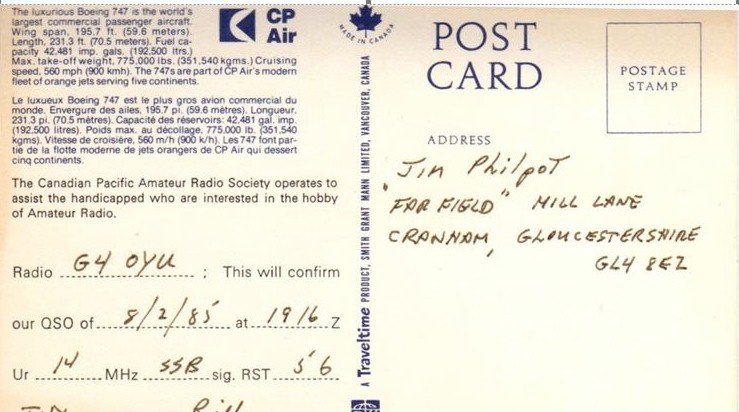 The luxurious Boeing 747 is the world's
largest commercial passenger aircraft.
Wing span, 195.7 ft. (59.6 meters).
Length, 231.3 ft. (70.5 meters). Fuel ca-
pacity 42,481 imp. gals. (192,500 ltrs.)
Max. take-off weight, 775,000 lbs. (351,540 kgms.) Cruising
speed, 560 mph (900 kmh). The 747s are part of CP Air's modern
fleet of orange jets serving five continents.
CP
Air
Le luxueux Boeing 747 est le plus gros avion commercial du
monde. Envergure des ailes, 195.7 pi. (59.6 mètres). Longueur,
231.3 pi. (70.5 mètres). Capacité des réservoirs: 42,481 gal. imp.
(192,500 litres). Poids max. au décollage, 775,000 lb. (351,540
kgms). Vitesse de croisière, 560 m/h (900 k/h). Les 747 font par-
tie de la flotte moderne de jets orangers de CP Air qui dessert
cinq continents.
The Canadian Pacific Amateur Radio Society operates to
assist the handicapped who are interested in the hobby
of Amateur Radio.
Radio G4 OYU ; This will confirm
our QSO of 8/2/85 at 1916 Z
Ur 14 MHz SSB sig. RST 56
MADE IN CANADA
A Traveltime PRODUCT, SMITH GRANT MANN LIMITED, VANCOUVER, CANADA
POST
CARD
POSTAGE
STAMP
ADDRESS
Jim Philpot
"FAR FIELD" MILL LANE
CRANHAM, GLOUCESTERSHIRE
GL4 8EZ